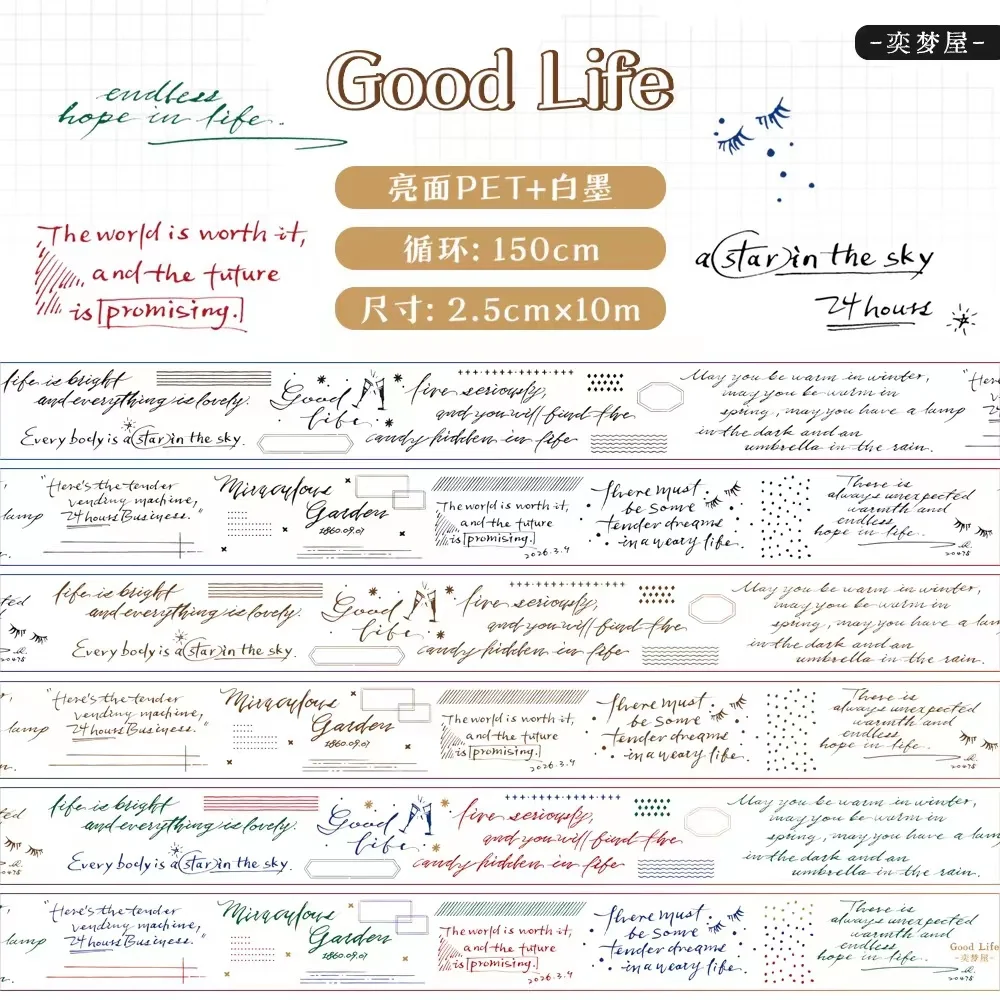 -奕梦屋-
Good Life
endless
hope in life.
亮面PET+白墨
循环: 150cm
尺寸: 2.5cm×10m
The world is worth it,
and the future
is promising.
a star in the sky
24 hours
life is bright
and everything is lovely.
Every body is a star in the sky.
Good
life.
live seriously,
and you will find the
candy hidden in life
May you be warm in winter,
may you be warm in
spring, may you have a lamp
in the dark and an
umbrella in the rain.
"Here's
lamp
"Here's the tender
vending machine,
24 hours Business."
Miraculous
Garden
1860.09.07
The world is worth it,
and the future
is promising.
2026.3.4
There must
be some
tender dreams
in a weary life.
There is
always unexpected
warmth and
endless
hope in life.
20475
life is bright
and everything is lovely.
Every body is a star in the sky.
Good
life.
live seriously,
and you will find the
candy hidden in life
May you be warm in winter,
may you be warm in
spring, may you have a lam
in the dark and an
umbrella in the rain.
lamp
"Here's the tender
vending machine,
24 hours Business."
Miraculous
Garden
1860.09.07
The world is worth it,
and the future
is promising.
2026.3.4
There must
be some
tender dreams
in a weary life.
There is
always unexpected
warmth and
endless
hope in life.
20475
life is bright
and everything is lovely.
Every body is a star in the sky.
Good
life.
live seriously,
and you will find the
candy hidden in life
May you be warm in winter,
may you be warm in
spring, may you have a lam
in the dark and an
umbrella in the rain.
lamp
"Here's the tender
vending machine,
24 hours Business."
Miraculous
Garden
1860.09.07
The world is worth it,
and the future
is promising.
2026.3.4
There must
be some
tender dreams
in a weary life.
There is
always unexpected
warmth and
endless
hope in life.
20475
Good Life
-奕梦屋-